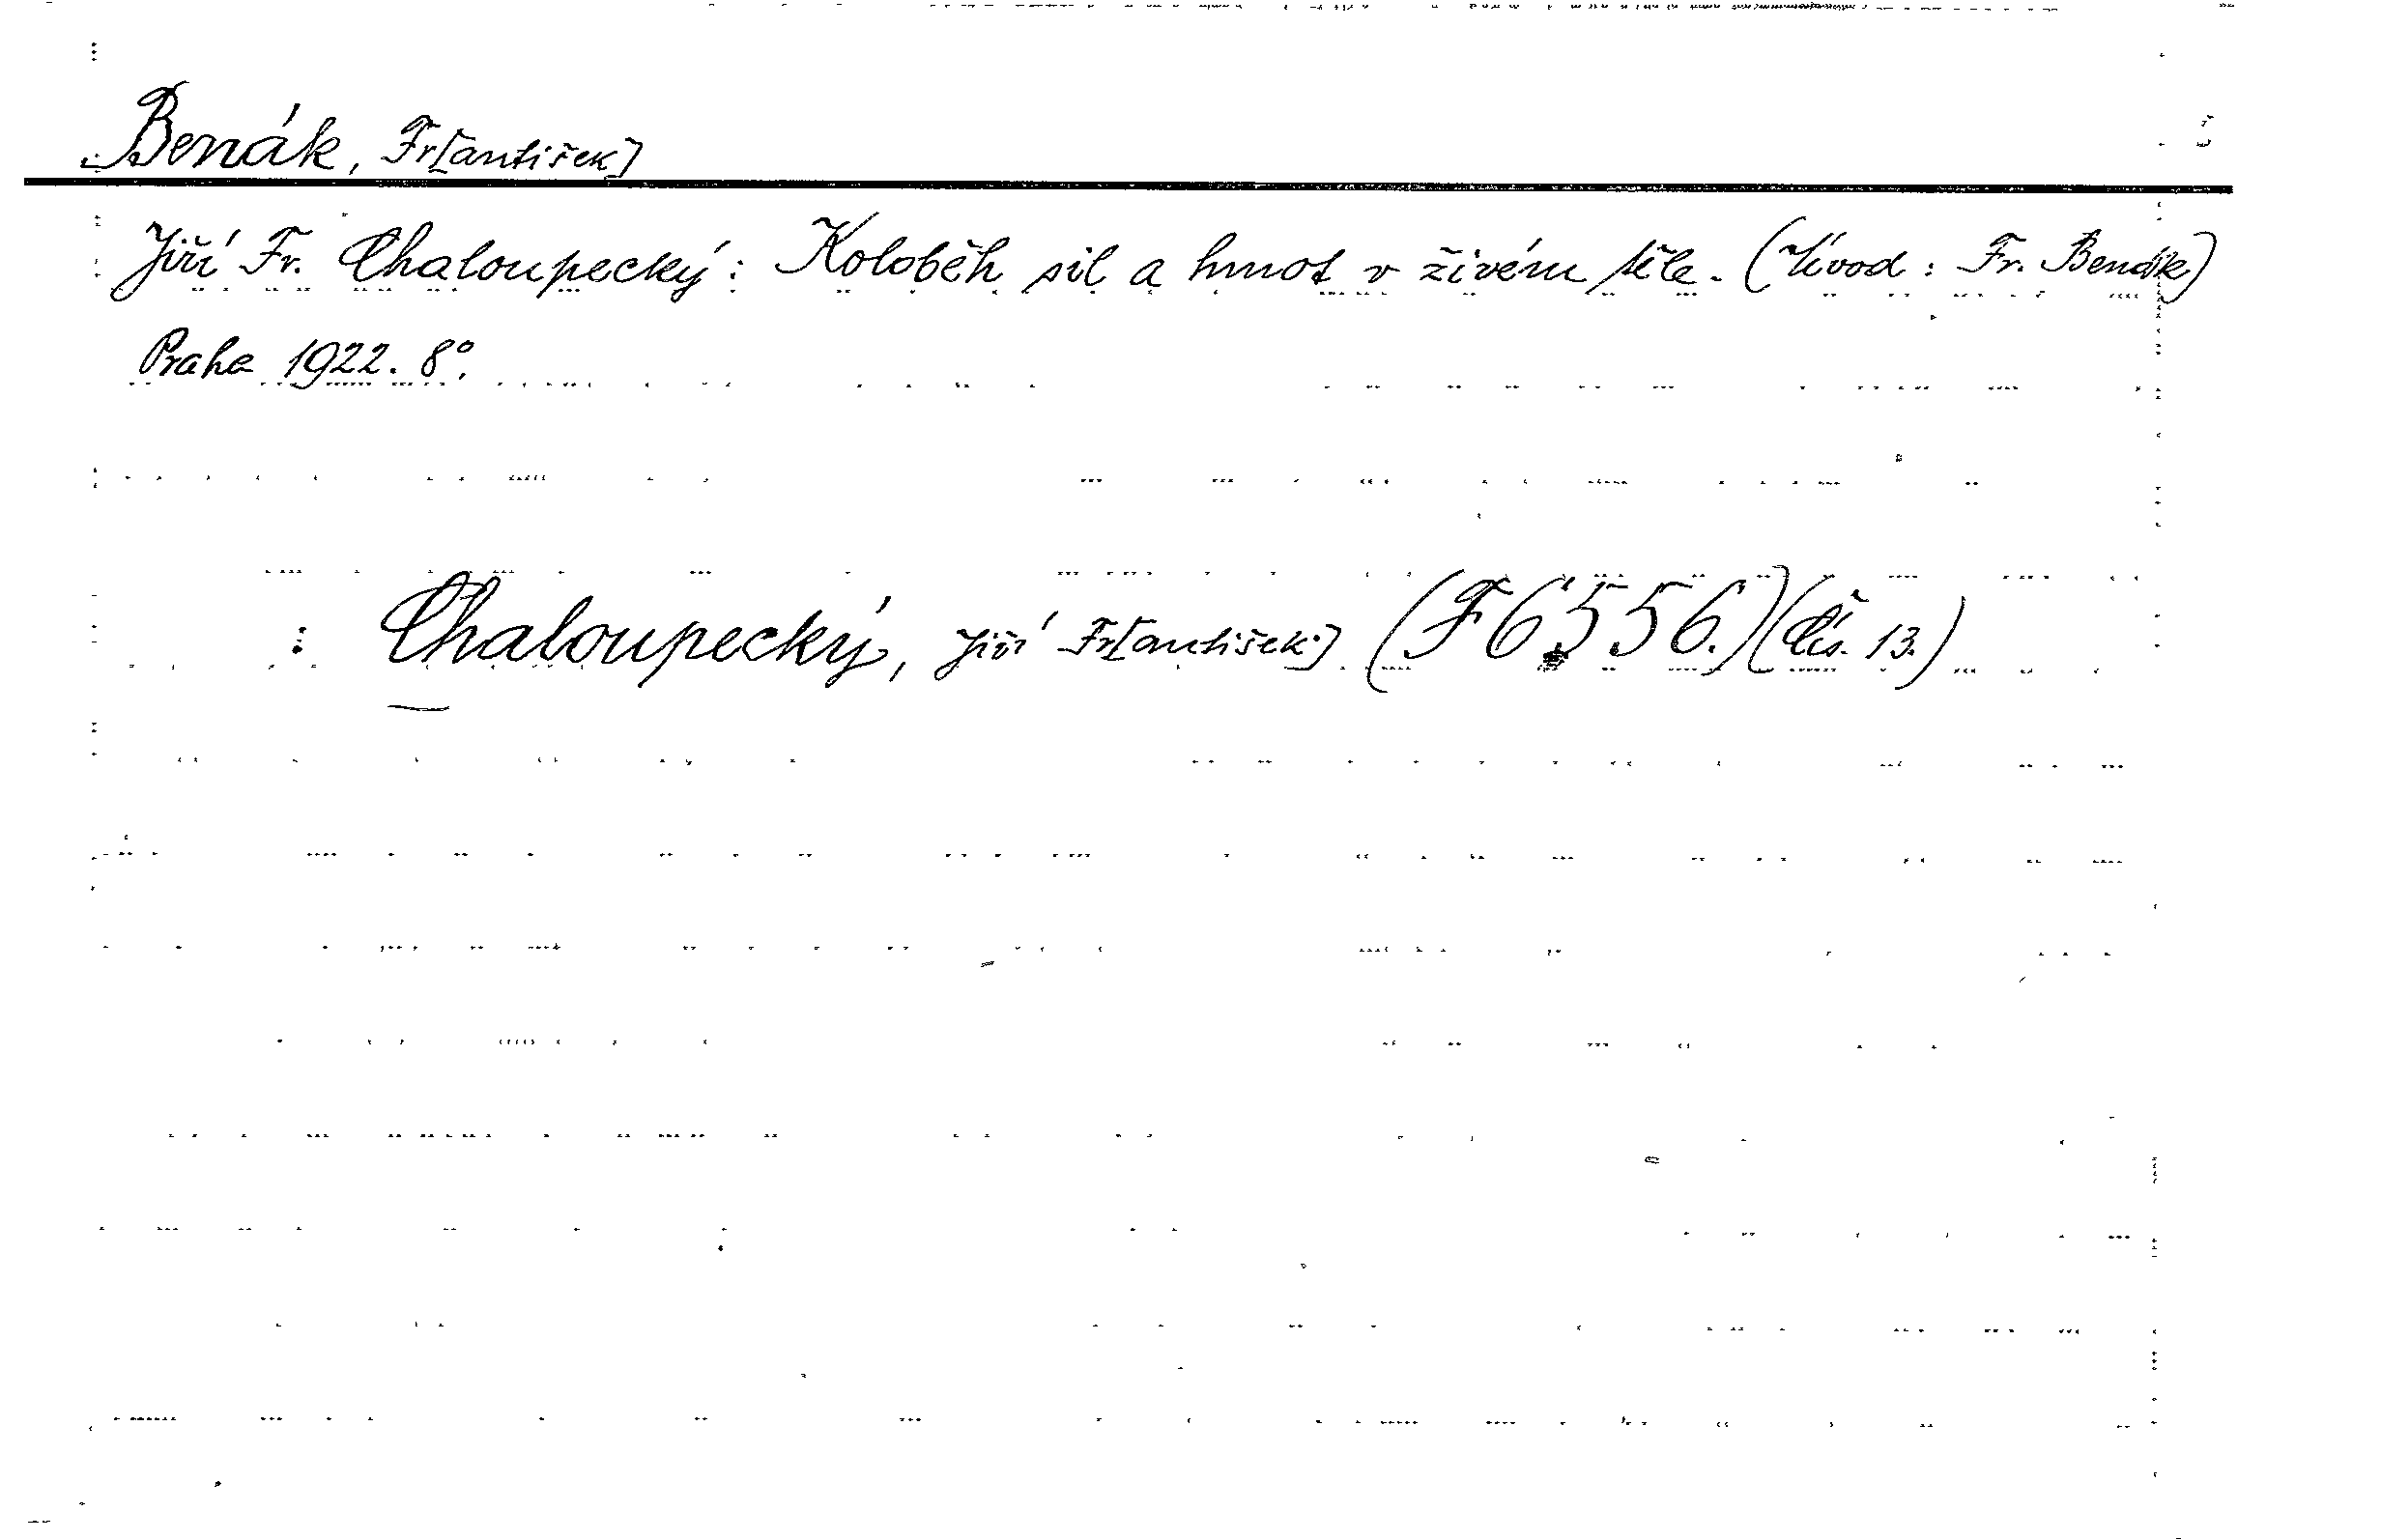 Benák, Fr[antišek]
Jiří Fr. Chaloupecký: Koloběh sil a hmot v živém těle. (Úvod: Fr. Benák)
Praha 1922. 8°.
: Chaloupecký, Jiří Fr[antišek] (F 6556.)(Čís. 13.)